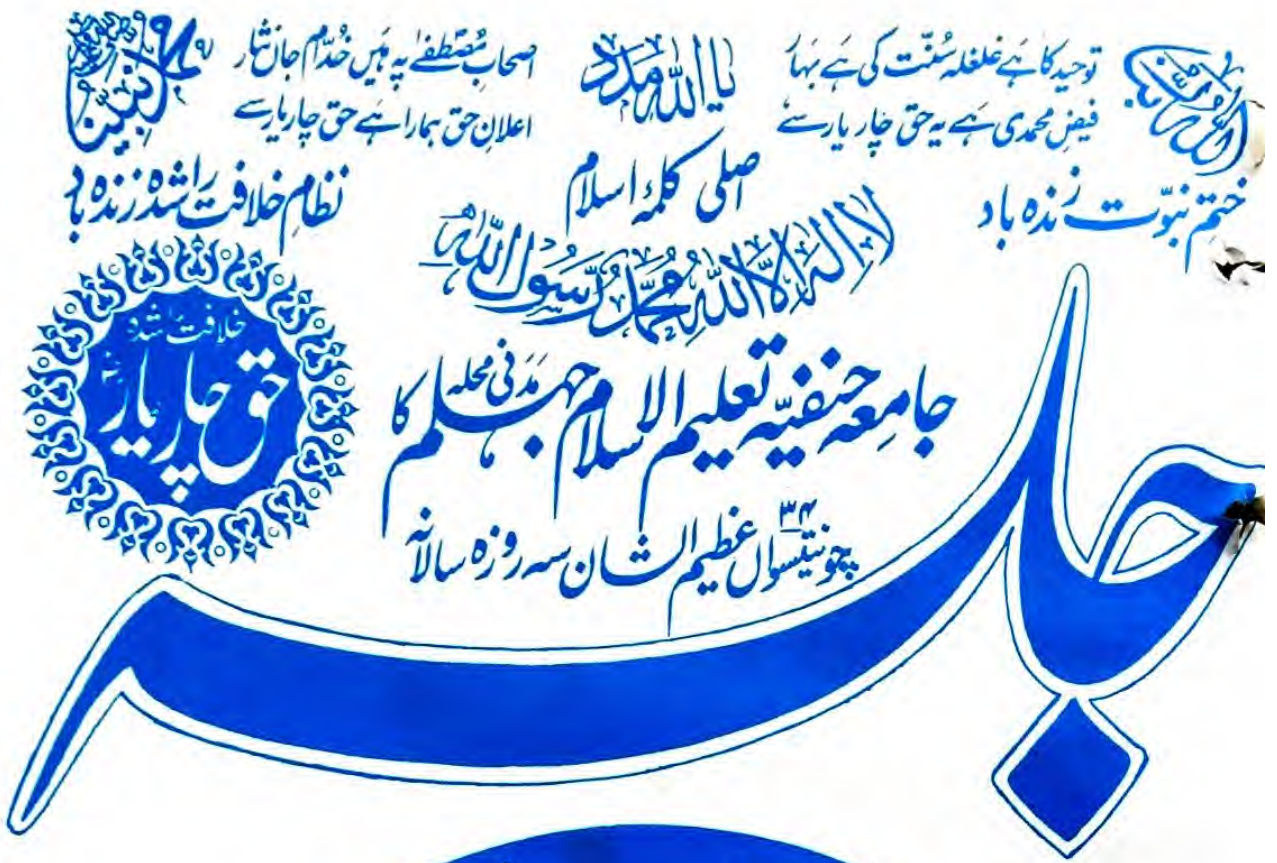 توحید کا ہے غلغلہ سُنّت کی ہے بہار
فیضِ محمدی ہے یہ حق چار یار سے
ختمِ نبوّت زندہ باد
یا اللہ مدد
اصلی کلمۂ اسلام
لَا اِلٰہَ اِلَّا اللہُ مُحَمَّدٌ رَّسُوْلُ اللہِ
اصحابِ مُصطفےٰ پہ ہیں خُدّام جاں نثار
اعلانِ حق ہمارا ہے حق چار یار سے
نظامِ خلافت راشدہ زندہ باد
خلافت راشدہ
حق چار یار
جامعہ حنفیہ تعلیم الاسلام مدنی محلہ جہلم کا
۳۴
چونتیسواں عظیم الشان سہ روزہ سالانہ
جلسہ